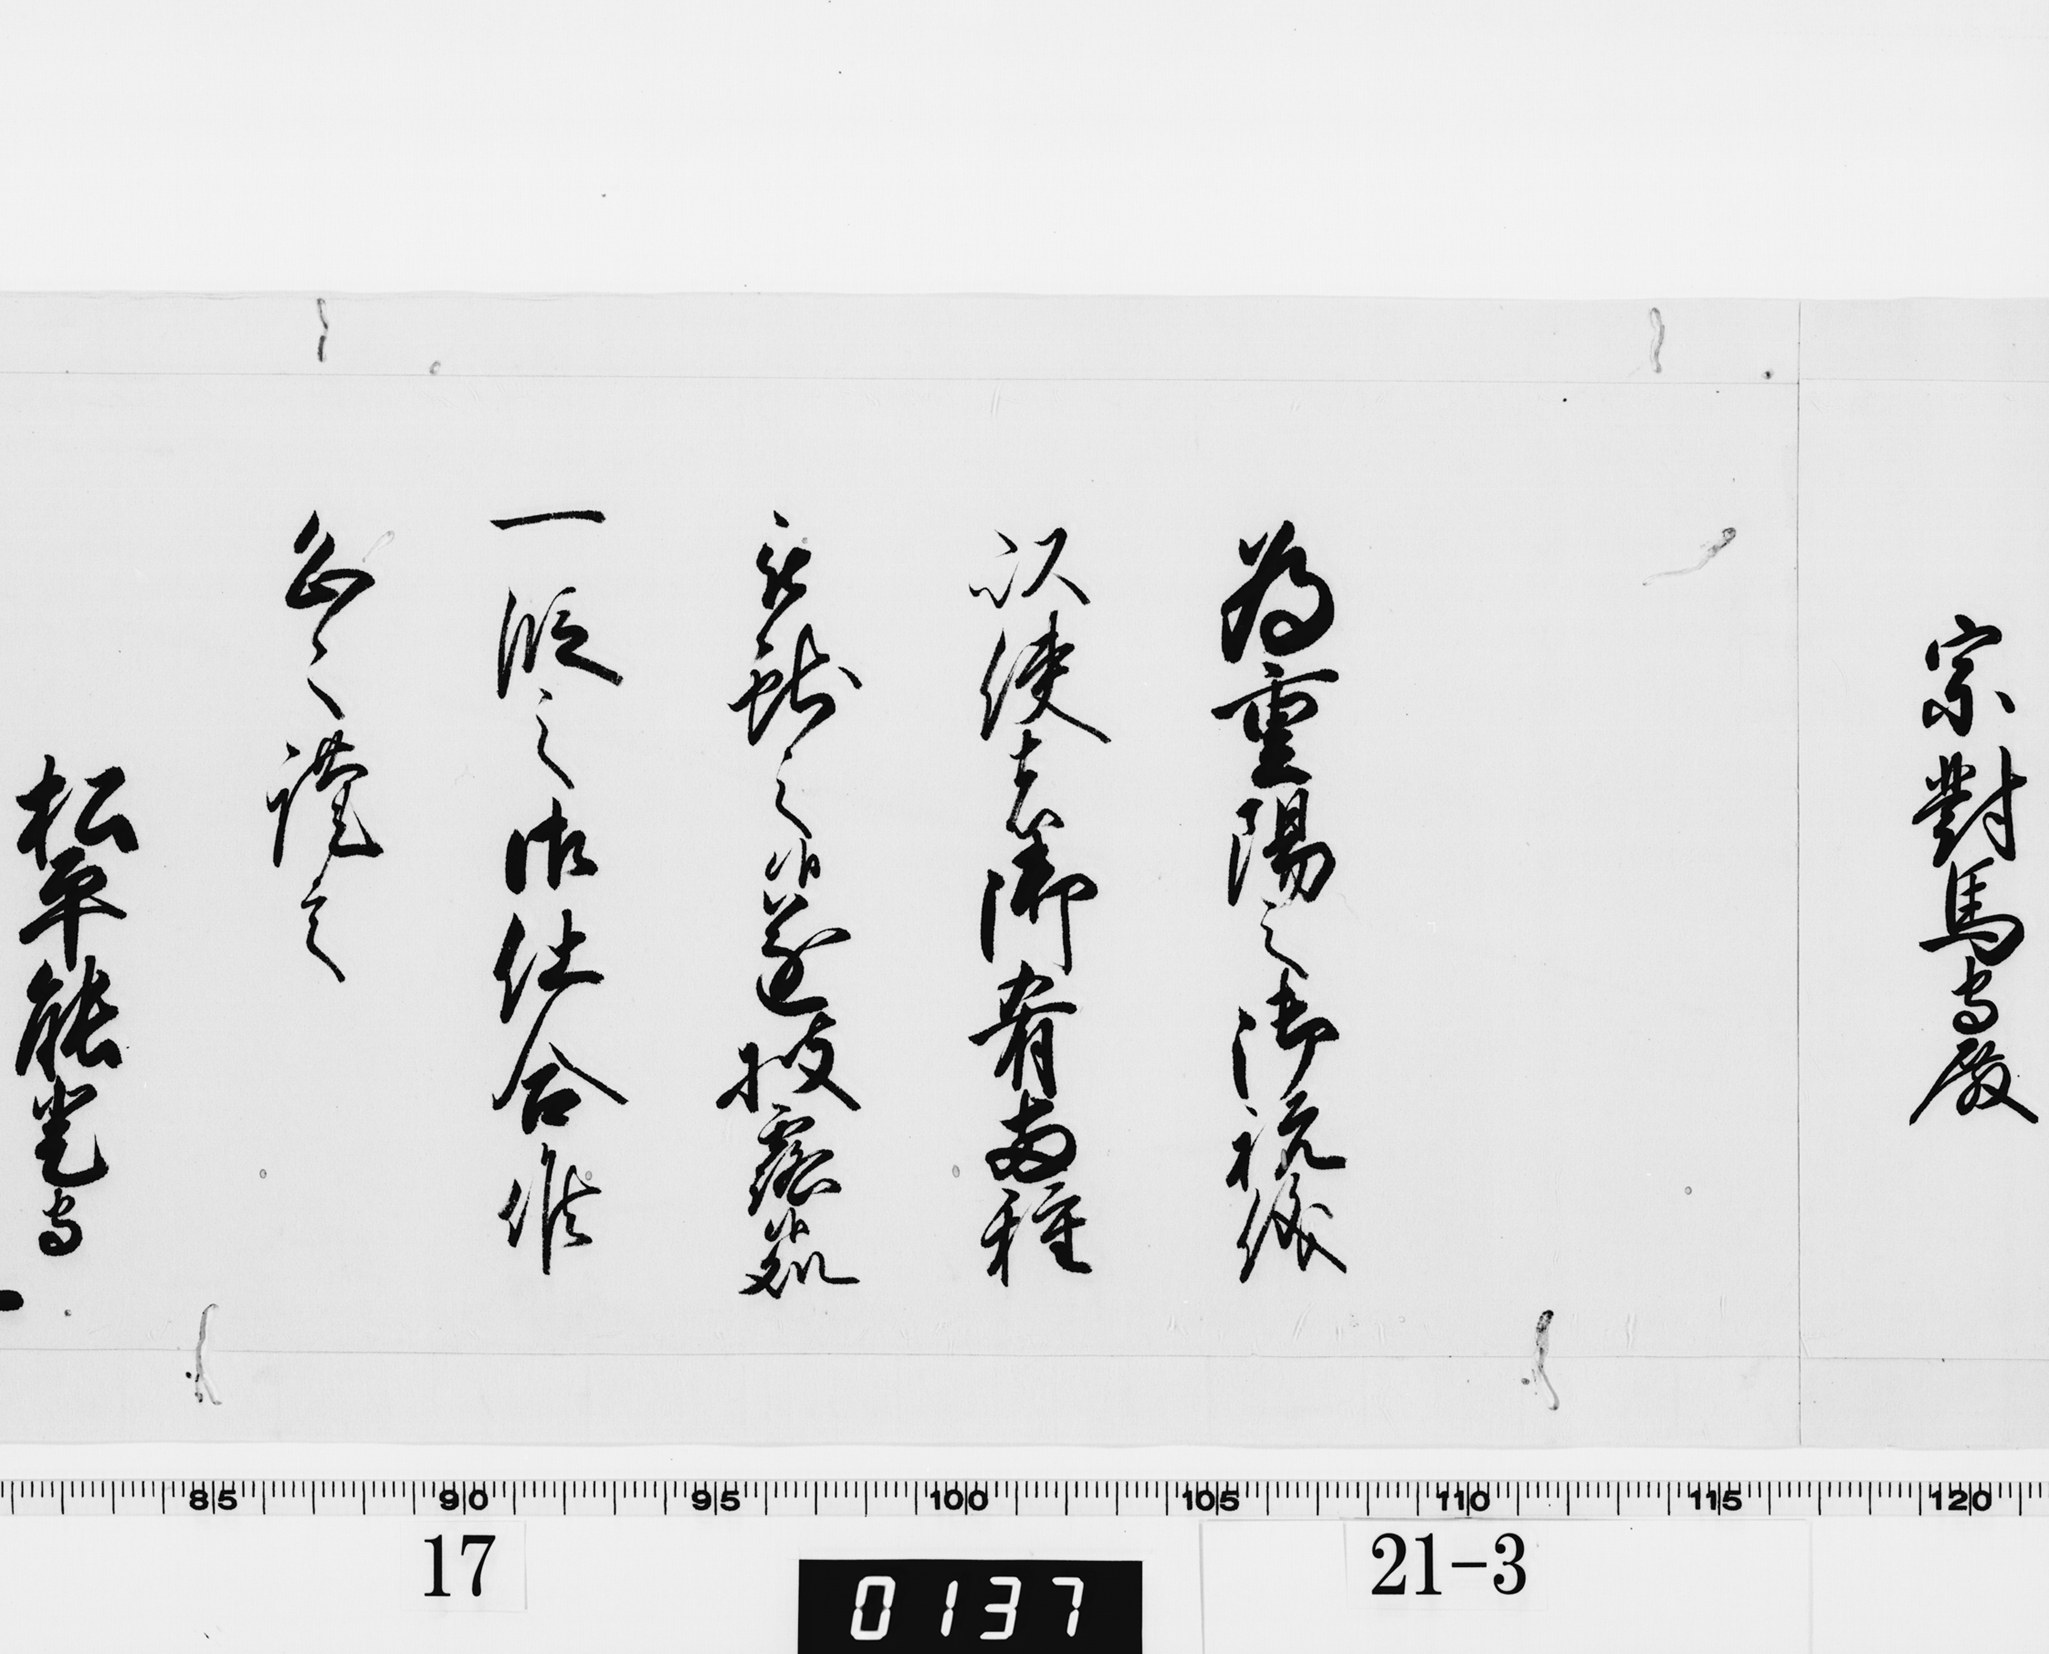 宗對馬守殿
為重陽之御祝儀
以使者御肴両種
被献之候遂披露候處
一段之御仕合候
恐々謹言
松平能登守
85 90 95 100 105 110 115 120
17 0137 21-3